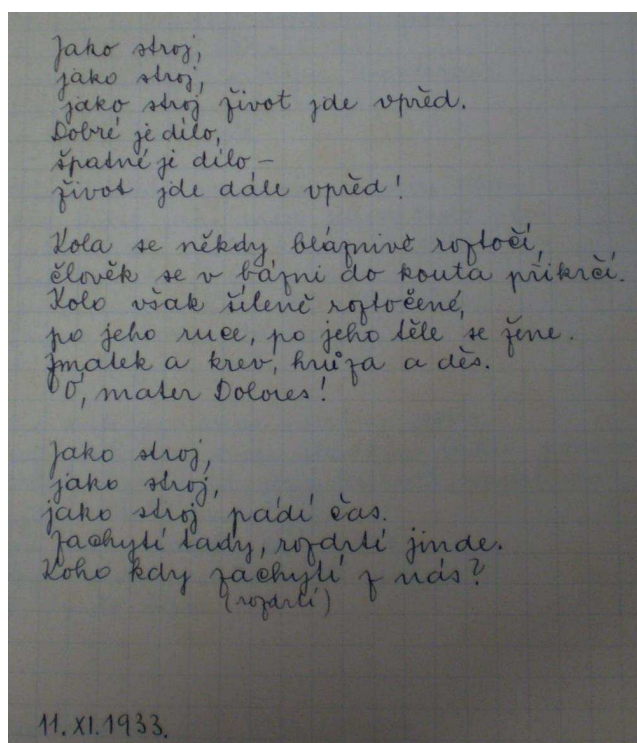 Jako stroj,
jako stroj,
jako stroj život jde vpřed.
Dobré je dílo,
špatné je dílo –
život jde dále vpřed!
Kola se někdy bláznivě roztočí,
člověk se v bázni do kouta přikrčí.
Kolo však šíleně roztočené,
po jeho ruce, po jeho těle se žene.
Zmatek a krev, hrůza a děs.
Ó, mater Dolores!
Jako stroj,
jako stroj,
jako stroj pádí čas.
Zachytí tady, rozdrtí jinde.
Koho kdy zachytí z nás?
(rozdrtí)
11. XI. 1933.